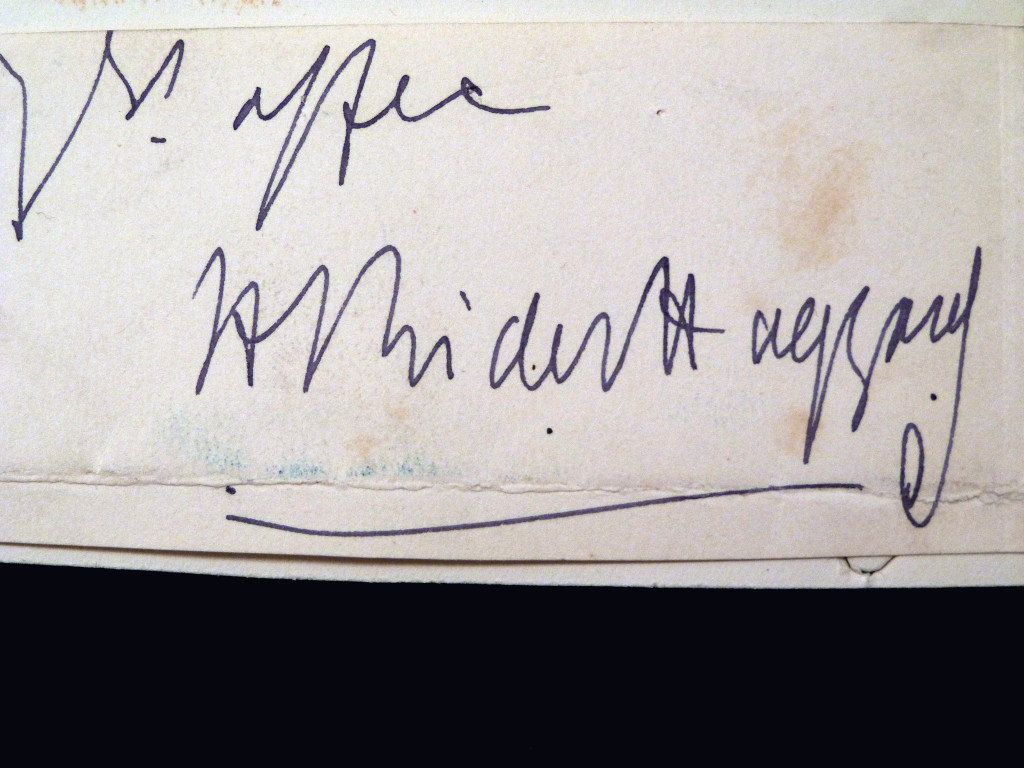 Yr. affec
H Rider Haggard